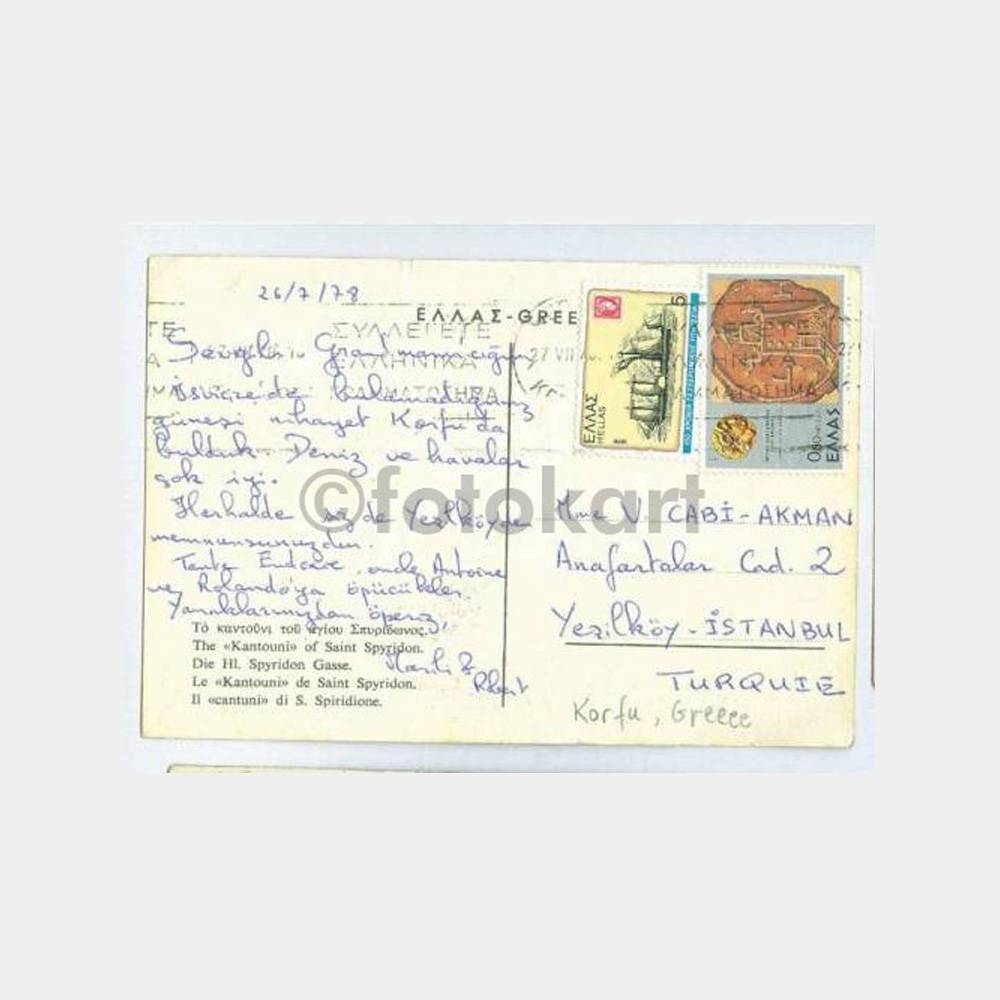 26/7/78
ΕΛΛΑΣ-GREE
ΣΥΛΛΕΓΕΤΕ
ΕΛΛΗΝΙΚΑ
ΓΡΑΜΜΑΤΟΣΗΜΑ
27 VII
Sevgili Gran'mamcığım
İsviçre'de bulamadığımız
güneşi nihayet Korfu'da
bulduk. Deniz ve havalar
çok iyi.
Herhalde siz de Yeşilköyden
memnunsunuzdur.
Tante oncle Antoine
ve Rolando'ya öpücükler.
Yanaklarınızdan öperiz,
Robert
Τὸ καντοῦνι τοῦ ἁγίου Σπυρίδωνος.
The «Kantouni» of Saint Spyridon.
Die Hl. Spyridon Gasse.
Le «Kantouni» de Saint Spyridon.
Il «cantuni» di S. Spiridione.
5
ΕΛΛΑΣ
HELLAS
080
ΕΛΛΑΣ
Mme V. CABİ-AKMAN
Anafartalar Cad. 2
Yeşilköy-İSTANBUL
TURQUIE
Korfu, Greece
©fotokart